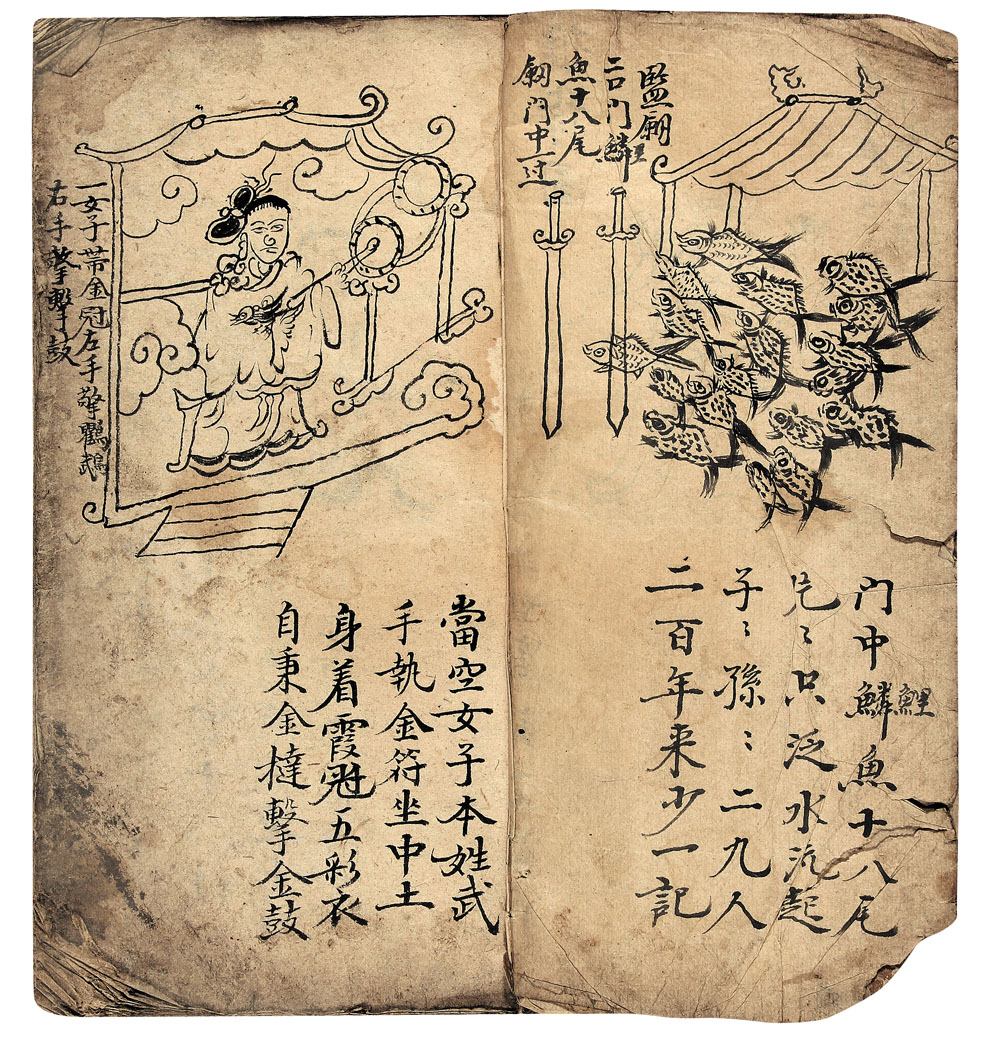 監釼
二口門鱗
里
魚十八尾
釼門中一过
鯉
門中鱗魚十八尾
只泛水汽起
子〻孫〻二九人
二百年来少一記
一女子帶金冠左手擎鸚鵡
右手擎擊鼓
當空女子本姓武
手執金符坐中土
身着霞冠五彩衣
自秉金撻擊金鼓